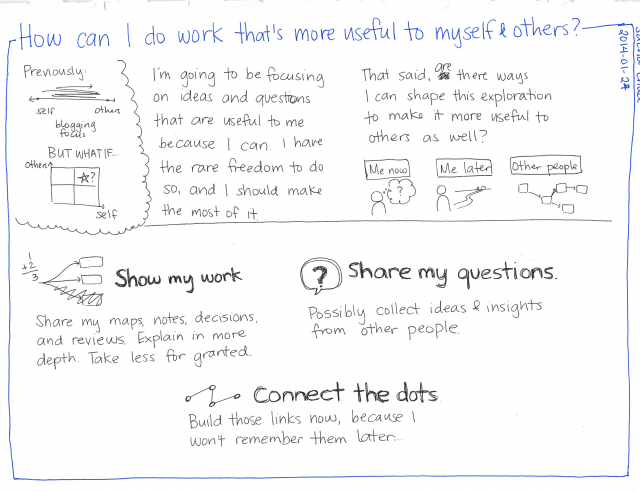 How can I do work that's more useful to myself & others?
2014-01-28
Previously:
self others
blogging
focus
BUT WHAT IF...
Others
★?
self
I'm going to be focusing
on ideas and questions
that are useful to me
because I can. I have
the rare freedom to do
so, and I should make
the most of it.
That said, are there ways
I can shape this exploration
to make it more useful to
others as well?
Me now
Me later
Other people
?
1
+2
3
Show my work
Share my maps, notes, decisions,
and reviews. Explain in more
depth. Take less for granted.
?
Share my questions.
Possibly collect ideas & insights
from other people.
Connect the dots
Build those links now, because I
won't remember them later...